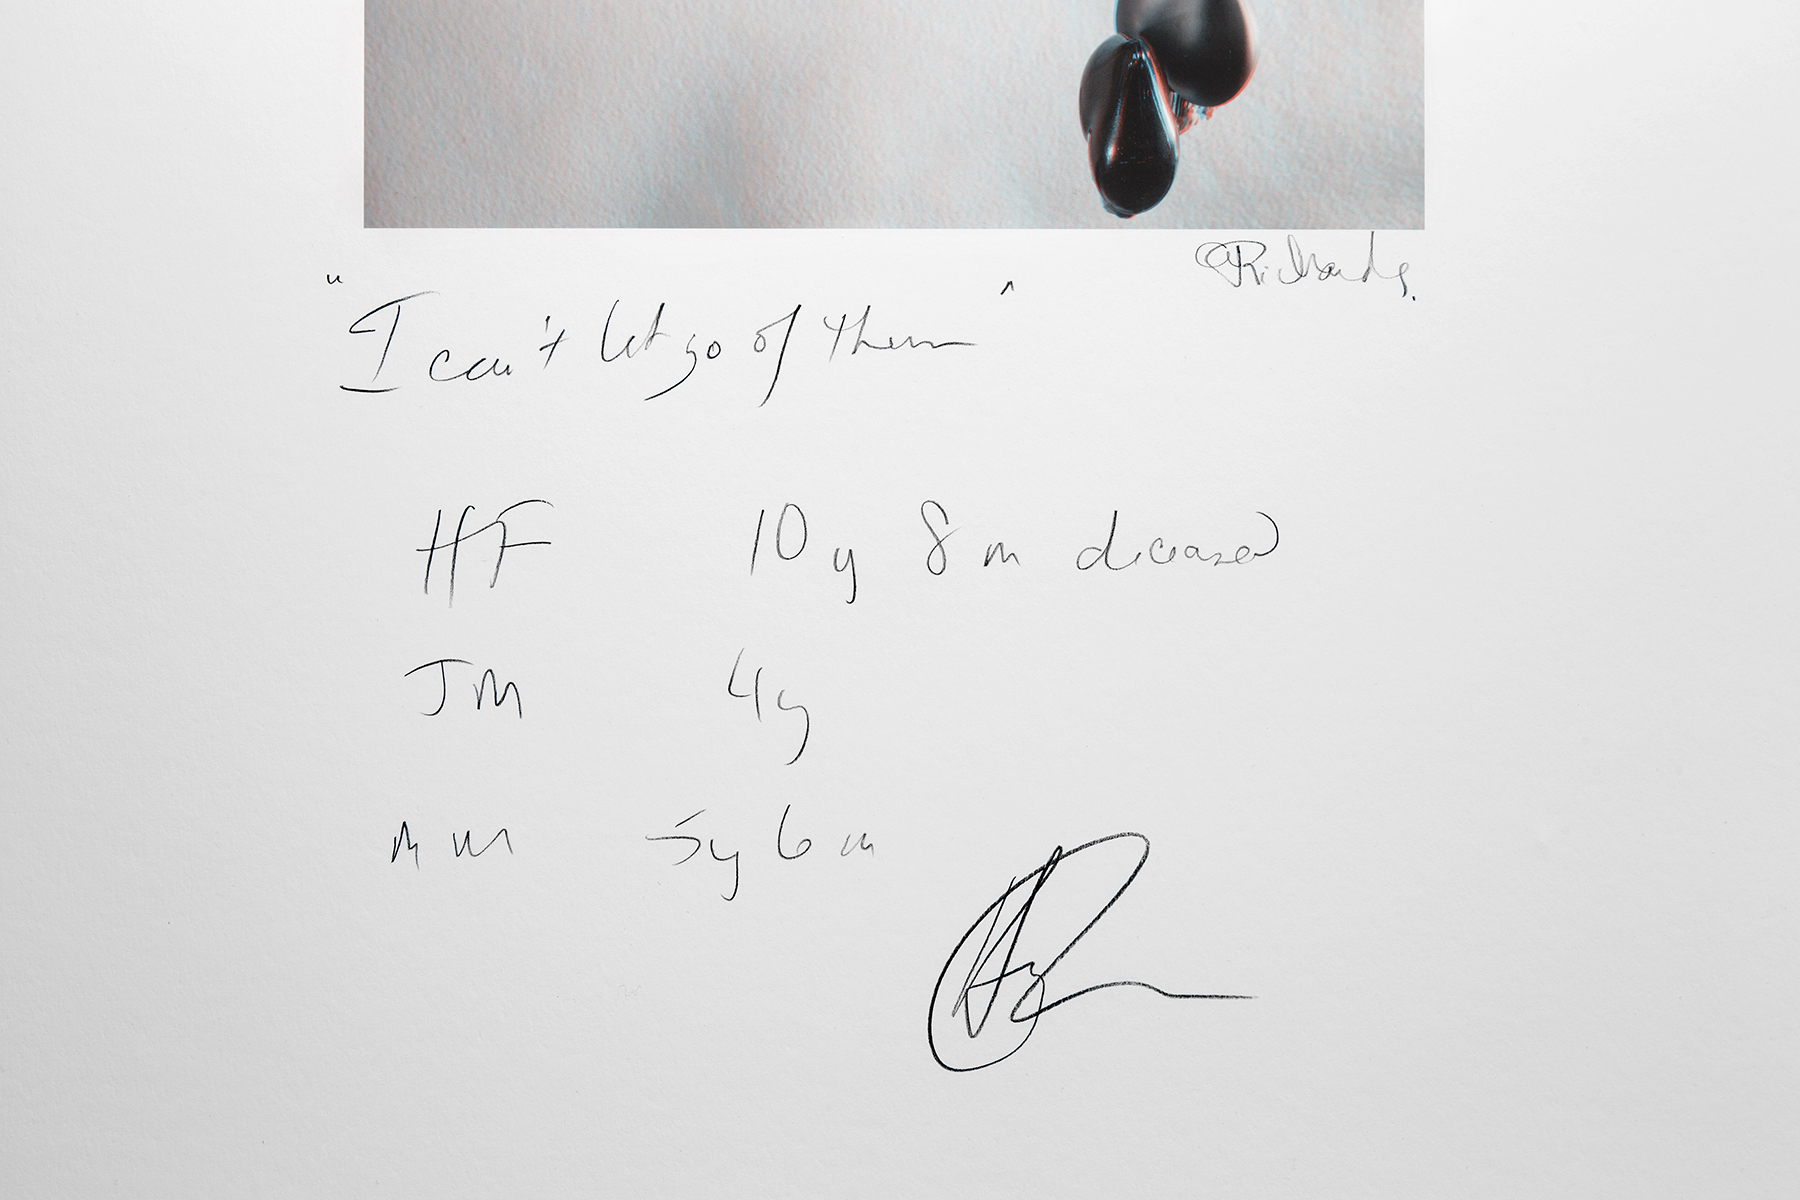 Richards.
"I can't let go of them"
HF 10y 8m diceased
JM 4y
MM 5y 6m